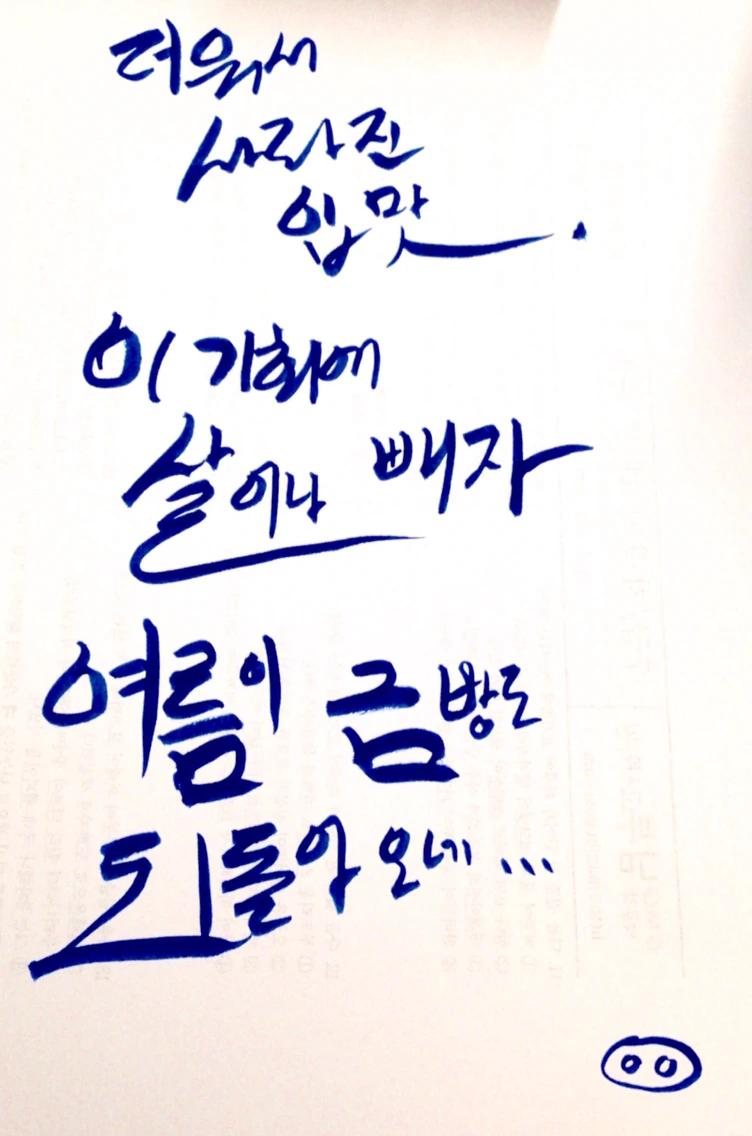 더워서
사라진
입맛.
이 기회에
살이나 빼자
여름이 금방도
되돌아 오네...